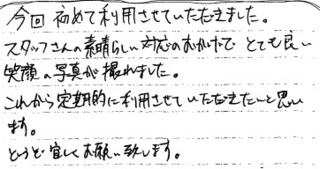 今回 初めて利用させていただきました。
スタッフさんの素晴らしい対応のおかげで とても良い
笑顔の写真が撮れました。
これから定期的に利用させていただきたいと思い
ます。
どうぞ宜しくお願い致します。